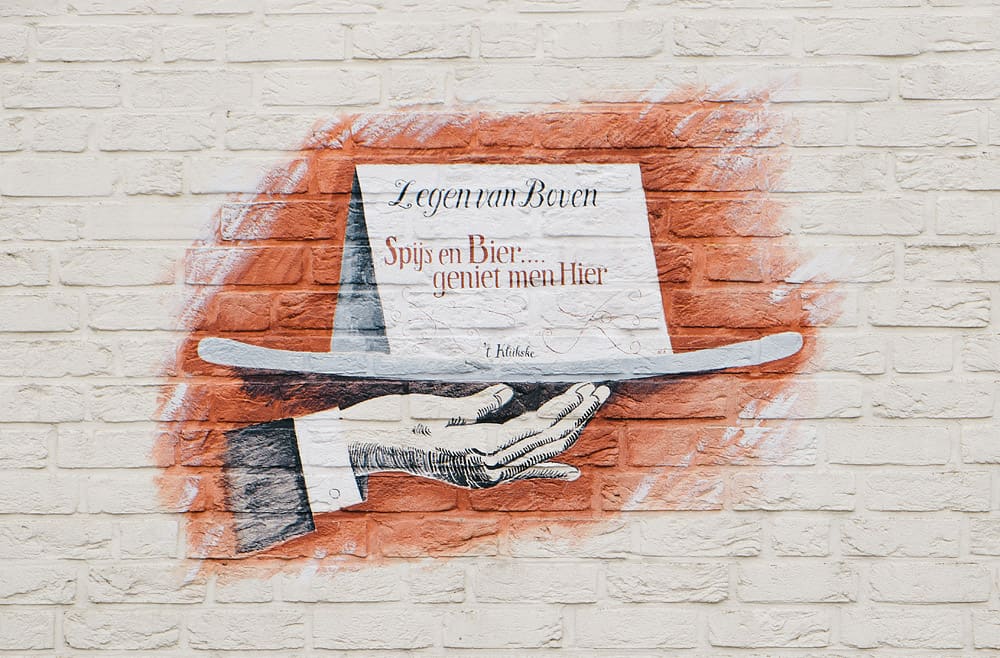 Zegen van Boven
Spijs en Bier....
geniet men Hier
't Klikske